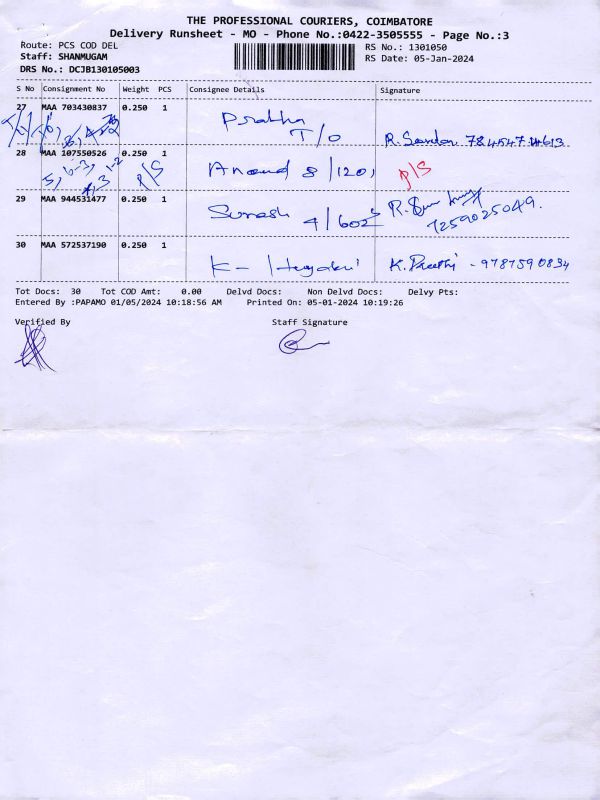 THE PROFESSIONAL COURIERS, COIMBATORE
Delivery Runsheet - MO - Phone No.:0422-3505555 - Page No.:3
Route: PCS COD DEL
Staff: SHANMUGAM
DRS No.: DCJB130105003
RS No.: 1301050
RS Date: 05-Jan-2024
S No Consignment No Weight PCS Consignee Details Signature
27 MAA 703430837 0.250 1 Prabha
T/O
28 MAA 107550526 0.250 1 Anand 8/120,
P/S
P/S
29 MAA 944531477 0.250 1 Suresh 4/602
7259025049.
30 MAA 572537190 0.250 1 K- K. Preethi - 9787590834
Tot Docs: 30 Tot COD Amt: 0.00 Delvd Docs: Non Delvd Docs: Delvy Pts:
Entered By :PAPAMO 01/05/2024 10:18:56 AM Printed On: 05-01-2024 10:19:26
Verified By Staff Signature